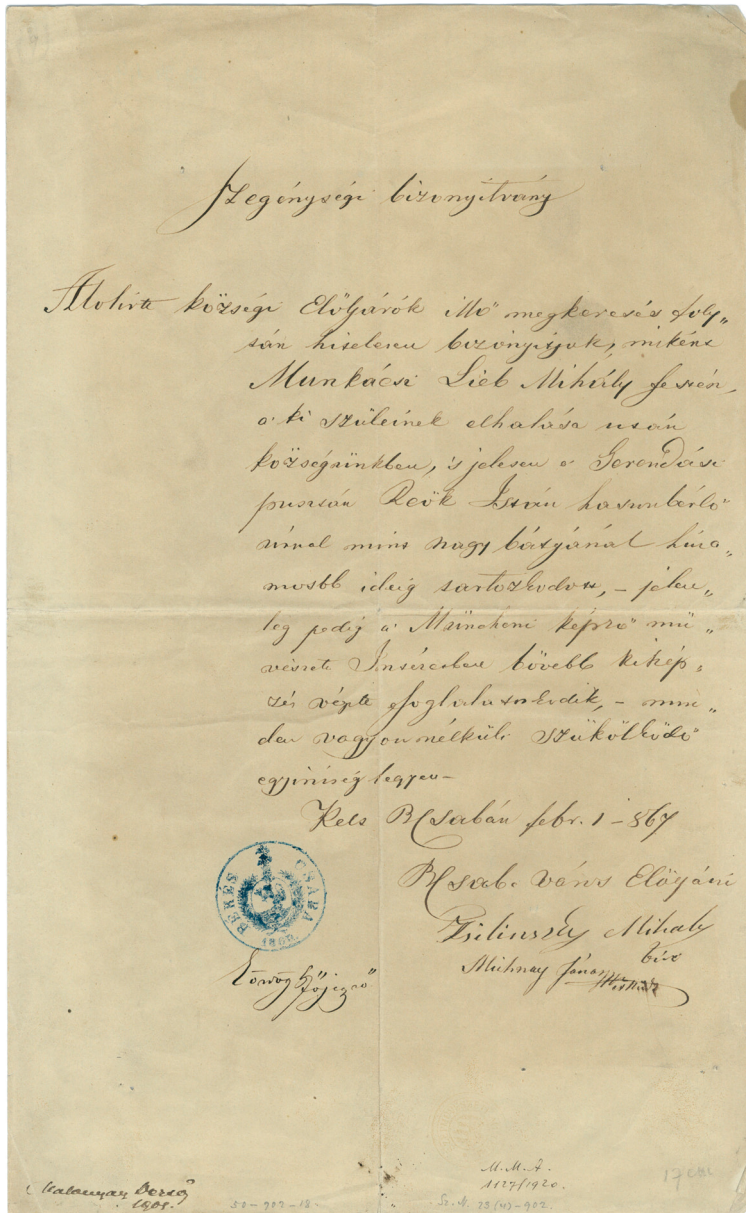 Szegénységi bizonyitvány
Alolirtt községi Elöljárók illö megkeresés foly„
tán hitelesen bizonyitjuk, miként
Munkácsi Lieb Mihály festén,
a ki szüleinek elhalása után
községünkben, 's jelesen a Gerendási
pusztán Reök István haszonbérlö
úrnál mint nagy bátyjánál húza„
mosb ideig tartozkodott, – jelen„
leg pedig a Müncheni képzö mü„
vészeti Intézetben bövebb kikép„
zés végett foglalatoskodik, – min„
den vagyon nélküli szükölködö
egyéniség legyen –
Kelt BCsabán febr. 1 – 867
BCsaba város Elöljári
BÉKÉS CSABA
Zsilinszky Mihaly
biró
Michnay János
föjegyzö
Kacziany
1905.
M.M.A.
1127/1920.
50–902–18.
Sz.N. 23(11)–902.